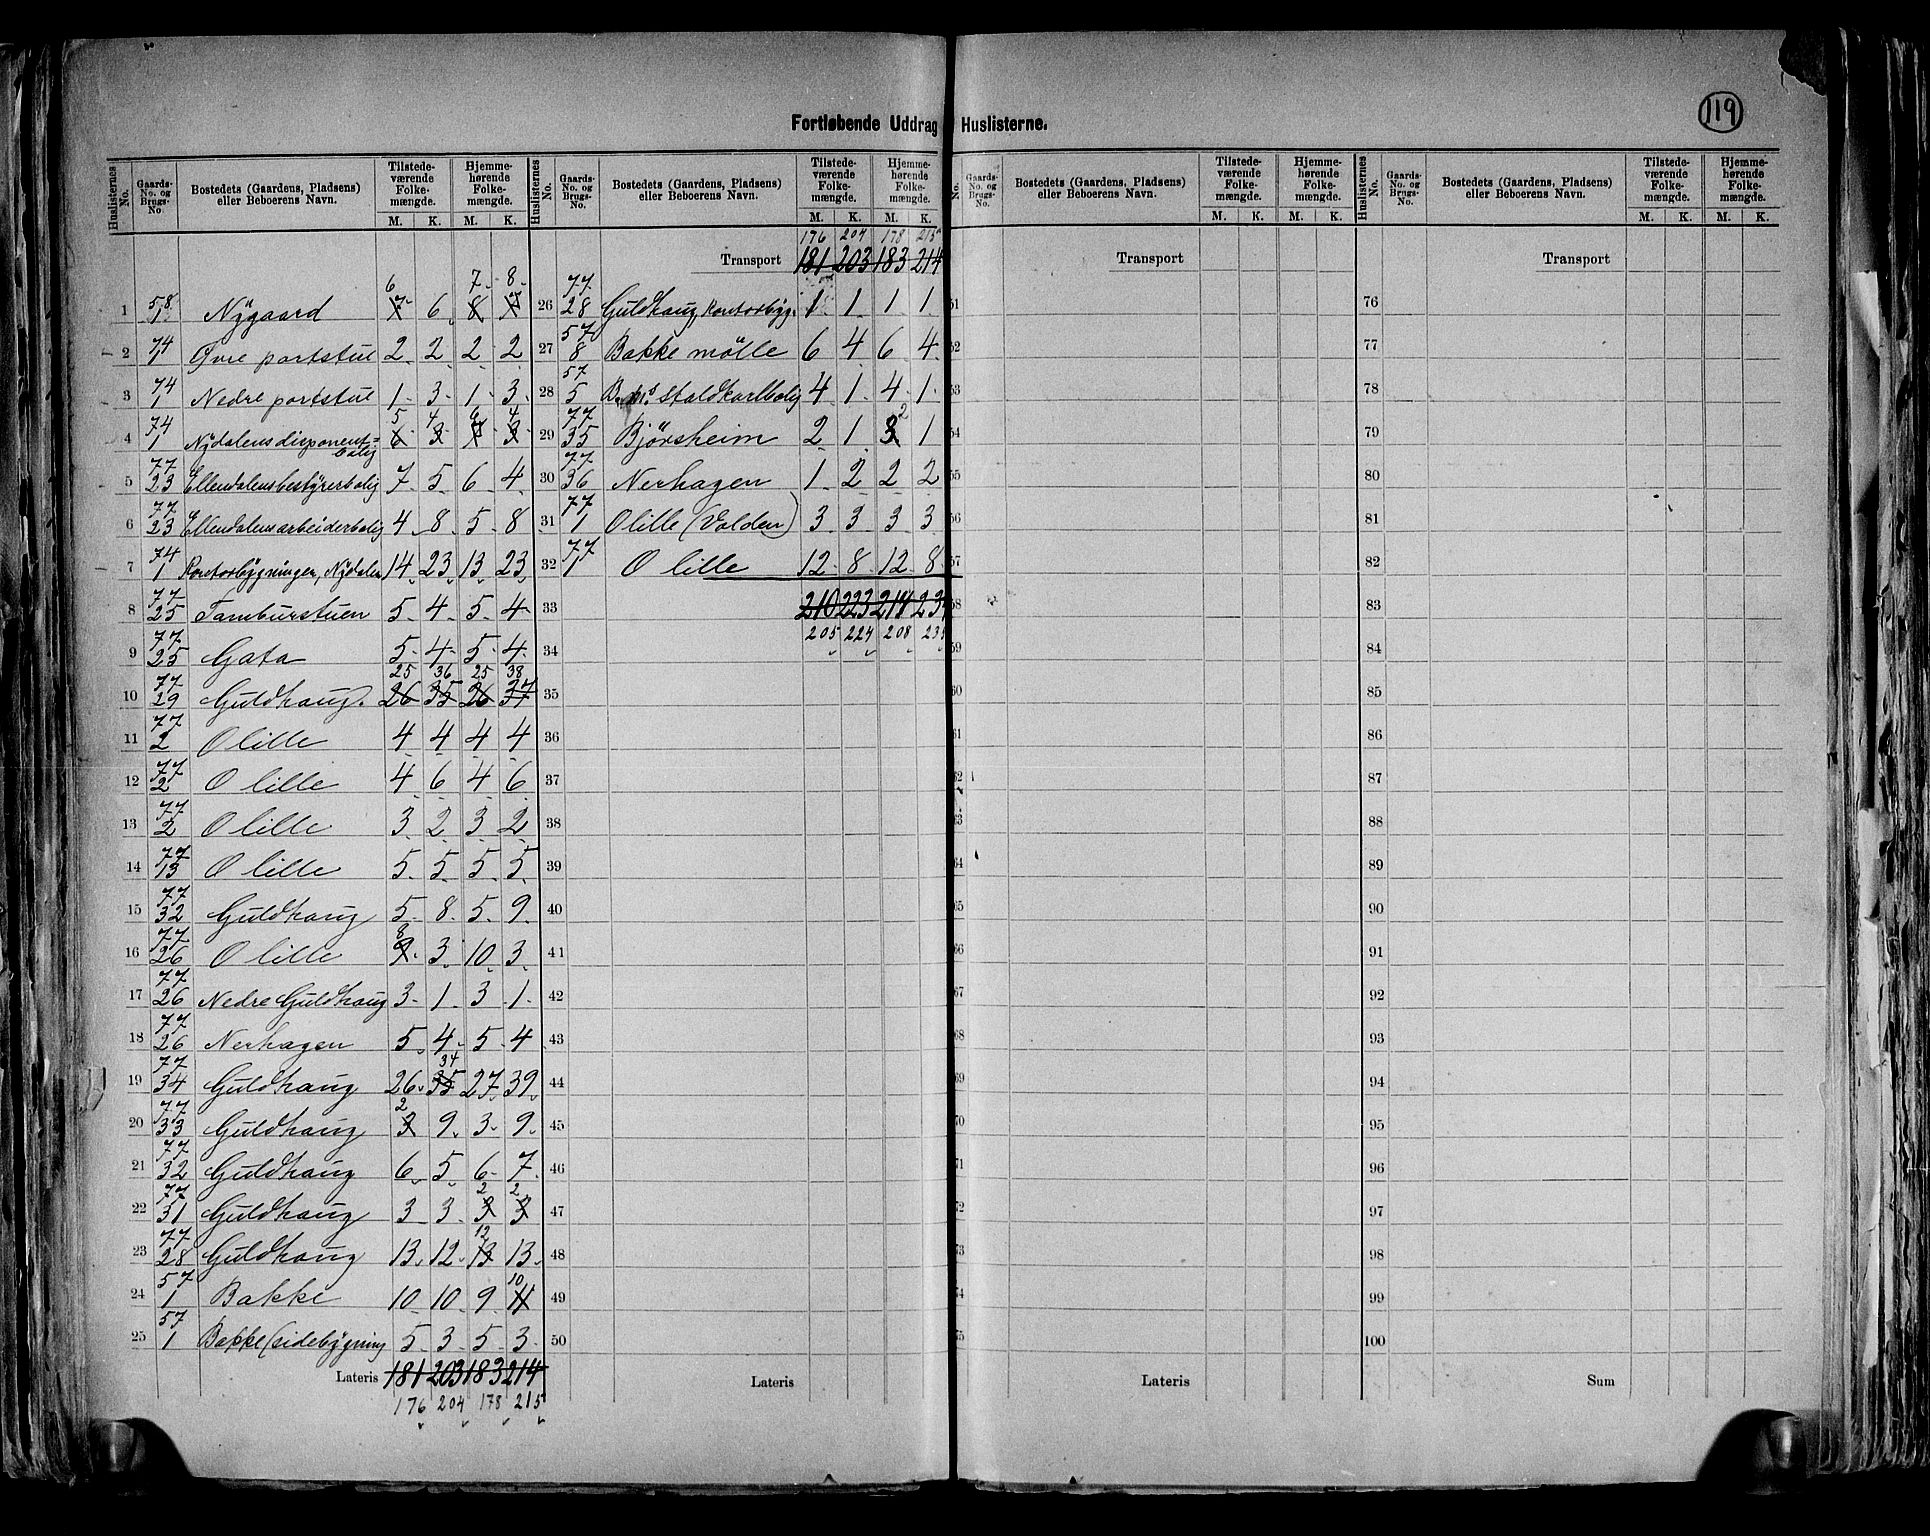 119
Fortløbende Uddrag Huslisterne.
Huslisternes No. Gaards-No. og Brugs-No. Bostedets (Gaardens, Pladsens) eller Beboerens Navn. Tilstede-værende Folke-mængde. M. K. Hjemme-hørende Folke-mængde. M. K.
1 58 1 Nygaard 7 6 6 8 7 7 8
2 74 1 Øvre portstue 2 2 2 2
3 74 1 Nedre portstue 1 3 1 3
4 74 1 Nydalens disponent-bolig 6 5 3 4 7 6 3 4
5 77 23 Ellendalens bestyrerbolig 7 5 6 4
6 77 23 Ellendalens arbeiderbolig 4 8 5 8
7 74 1 Kontorbygningen, Nydalen 14 23 13 23
8 77 25 Tamburstuen 5 4 5 4
9 77 25 Gata 5 4 5 4
10 77 29 Guldhaug. 26 25 35 36 26 25 37 38
11 77 2 O lille 4 4 4 4
12 77 2 O lille 4 6 4 6
13 77 2 O lille 3 2 3 2
14 77 13 O lille 5 5 5 5
15 77 32 Guldhaug 5 8 5 9
16 77 26 O lille 9 8 3 10 3
17 77 26 Nedre Guldhaug 3 1 3 1
18 77 26 Nerhagen 5 4 5 4
19 77 34 Guldhaug 26 35 34 27 39
20 77 33 Guldhaug 3 2 9 3 9
21 77 32 Guldhaug 6 5 6 7
22 77 31 Guldhaug 3 3 3 2 3 2
23 77 28 Guldhaug 13 12 13 12 13
24 57 1 Bakke 10 10 9 11 10
25 57 1 Bakke (sidebygning 5 3 5 3
Lateris 181 203 183 214
176 204 178 215
Huslisternes No. Gaards-No. og Brugs-No. Bostedets (Gaardens, Pladsens) eller Beboerens Navn. Tilstede-værende Folke-mængde. M. K. Hjemme-hørende Folke-mængde. M. K.
176 204 178 215
Transport 181 203 183 214
26 77 28 Guldhaug, kontorbyg. 1 1 1 1
27 57 8 Bakke mølle 6 4 6 4
28 57 5 B. m.s staldkarlbolig 4 1 4 1
29 77 35 Bjørsheim 2 1 3 2 1
30 77 36 Nerhagen 1 2 2 2
31 77 1 O lille (Volden) 3 3 3 3
32 77 1 O lille 12 8 12 8
33 210 223 214
205 224 208
34
35
36
37
38
39
40
41
42
43
44
45
46
47
48
49
50
Lateris
No. Gaards-No. og Brugs-No. Bostedets (Gaardens, Pladsens) eller Beboerens Navn. Tilstede-værende Folke-mængde. M. K. Hjemme-hørende Folke-mængde. M. K.
Transport
51
52
53
54
55
56
57
58
59
60
61
62
63
64
65
66
67
68
69
70
71
72
73
74
75
Lateris
Huslisternes No. Gaards-No. og Brugs-No. Bostedets (Gaardens, Pladsens) eller Beboerens Navn. Tilstede-værende Folke-mængde. M. K. Hjemme-hørende Folke-mængde. M. K.
Transport
76
77
78
79
80
81
82
83
84
85
86
87
88
89
90
91
92
93
94
95
96
97
98
99
100
Sum